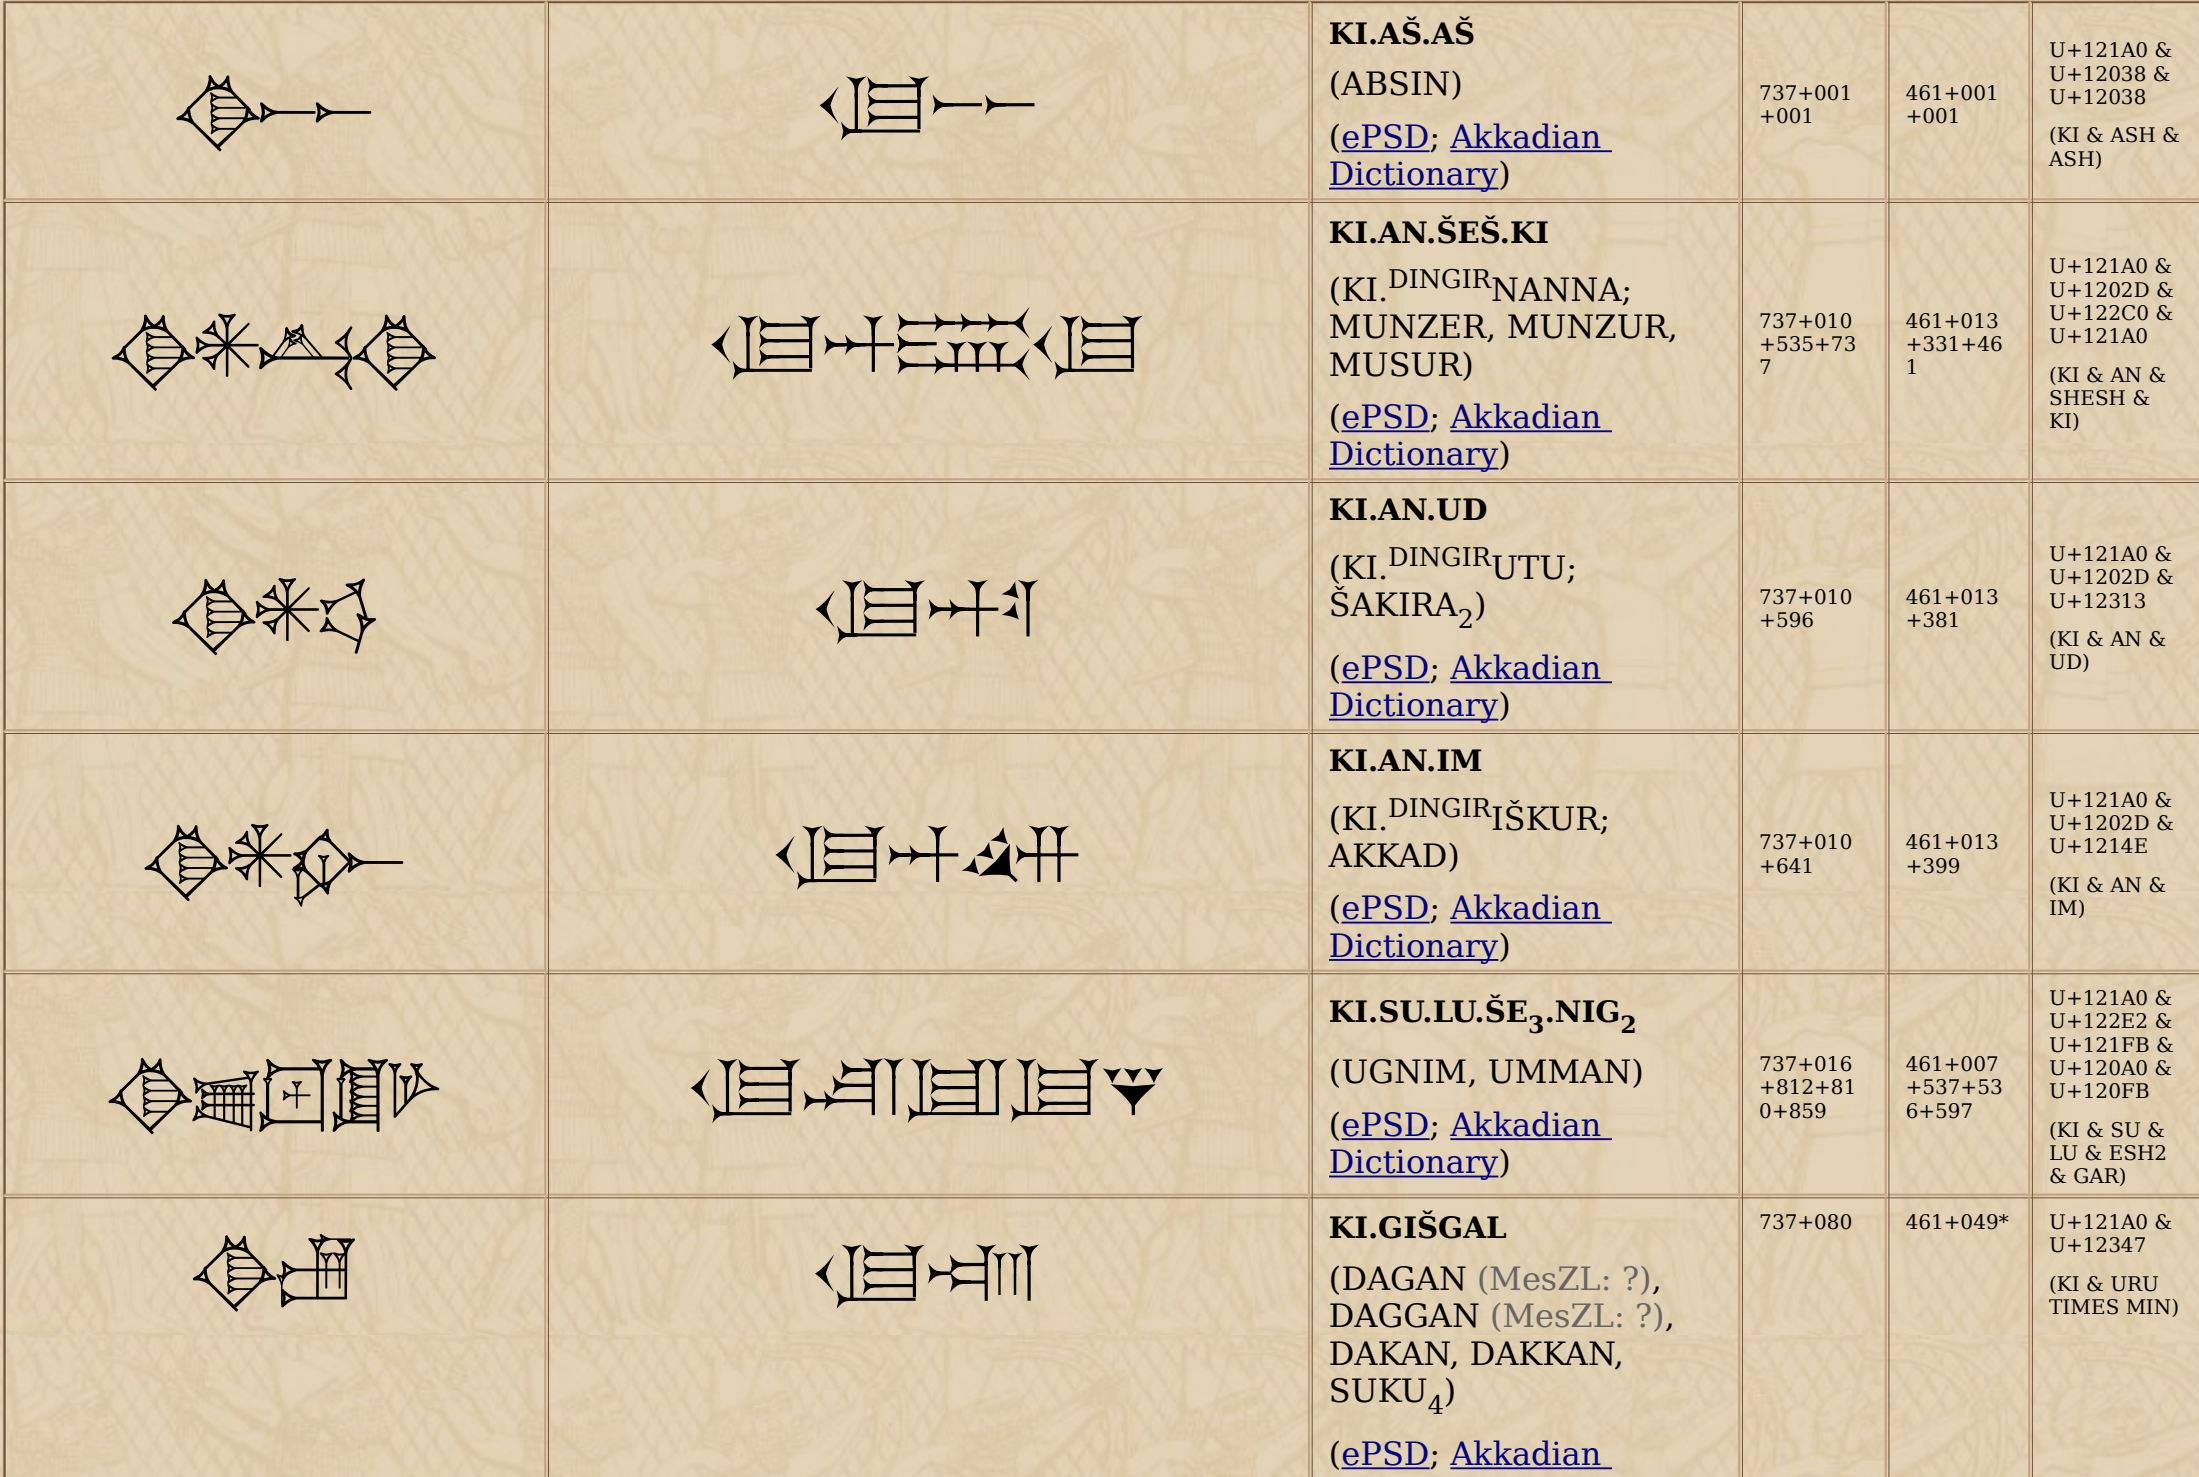 𒆠𒀸𒀸
𒆠𒀸𒀸
KI.AŠ.AŠ
(ABSIN)
(ePSD; Akkadian
Dictionary)
737+001
+001
461+001
+001
U+121A0 &
U+12038 &
U+12038
(KI & ASH &
ASH)
𒆠𒀭𒋀𒆠
𒆠𒀭𒋀𒆠
KI.AN.ŠEŠ.KI
(KI.DINGIRNANNA;
MUNZER, MUNZUR,
MUSUR)
(ePSD; Akkadian
Dictionary)
737+010
+535+73
7
461+013
+331+46
1
U+121A0 &
U+1202D &
U+122C0 &
U+121A0
(KI & AN &
SHESH &
KI)
𒆠𒀭𒌓
𒆠𒀭𒌓
KI.AN.UD
(KI.DINGIRUTU;
ŠAKIRA₂)
(ePSD; Akkadian
Dictionary)
737+010
+596
461+013
+381
U+121A0 &
U+1202D &
U+12313
(KI & AN &
UD)
𒆠𒀭𒅎
𒆠𒀭𒅎
KI.AN.IM
(KI.DINGIRIŠKUR;
AKKAD)
(ePSD; Akkadian
Dictionary)
737+010
+641
461+013
+399
U+121A0 &
U+1202D &
U+1214E
(KI & AN &
IM)
𒆠𒋢𒇻𒂠𒃻
𒆠𒋢𒇻𒂠𒃻
KI.SU.LU.ŠE₃.NIG₂
(UGNIM, UMMAN)
(ePSD; Akkadian
Dictionary)
737+016
+812+81
0+859
461+007
+537+53
6+597
U+121A0 &
U+122E2 &
U+121FB &
U+120A0 &
U+120FB
(KI & SU &
LU & ESH2
& GAR)
𒆠𒍇
𒆠𒍇
KI.GIŠGAL
(DAGAN (MesZL: ?),
DAGGAN (MesZL: ?),
DAKAN, DAKKAN,
SUKU₄)
(ePSD; Akkadian
737+080
461+049*
U+121A0 &
U+12347
(KI & URU
TIMES MIN)